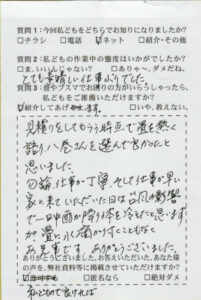 質問1:今回私どもをどちらでお知りになりましたか?
□チラシ □電話 ☑ネット □紹介・その他
質問2:私どもの作業中の態度はいかがでしたか?
□ま、いいんじゃない? □ありゃ〜、ダメだね。
とても素晴しい仕事ぶりでした
質問3:畳やフスマでお困りの方がいらっしゃったら、
私どもをご推薦いただけますか?
☑紹介してあげます □いや、教えない。
見積りをしてもらう時点で畳を熱く
語り八巻さんを選んで良かったと
思いました
勿論、仕事が丁寧、そして仕事が早い
家に来ていただいた日は台風の影響
で一日中雨が降り体を冷えたと思います
が畳に水1滴かけずこともなく
お見事です。ありがとうございました。
ありがとうございました。お答えいただいた、あなた様
の声を、弊社資料等に掲載させていただけますか?
□匿名なら □絶対ダメ
私どもで良ければ